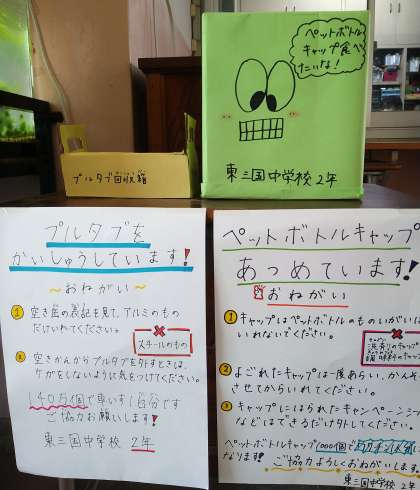 ペットボトル
キャップ食べ
たいな!
プルタブ回収箱
東三国中学校 2年
プルタブを
かいしゅうしています!
~おねがい~
① 空き缶の表記を見て、アルミのもの
だけいれてください。
✖
スチールのもの
② 空きかんからプルタブを外すときは、
ケガをしないように気をつけてください。
140万個で車いす1台分です
ご協力お願いします!
東三国中学校 2年
ペットボトルキャップ
あつめています!
おねがい
① キャップはペットボトルのものいがいは
いれないでください。
✖
洗剤のキャップ
調味料のキャップ
② よごれたキャップは一度あらい、かんそう
させてからいれてください。
③ キャップにはられたキャンペーンシール
などはできるだけ外してください。
ペットボトルキャップ1000個で
なります! ご協力よろしくおねがいします!
東三国中学校 2年